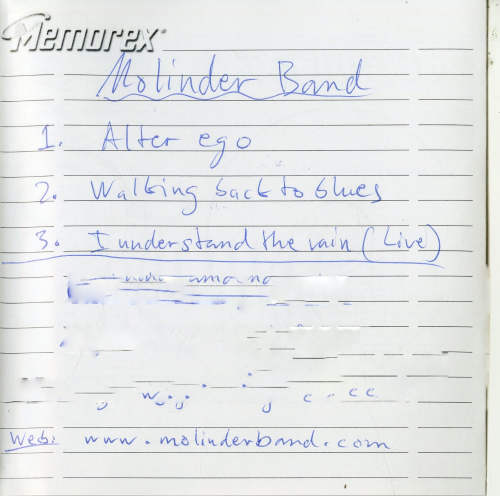 Memorex
Molinder Band
1. Alter ego
2. Walking back to blues
3. I understand the rain (Live)
Web: www.molinderband.com